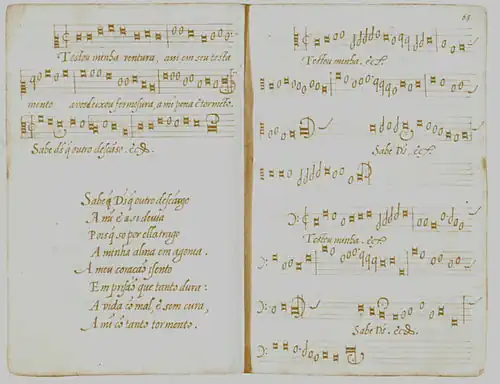 Testou minha ventura, ami em seu testa
mento avos deixou fermosura, a mi pena e tormeto.
Sabe ds q̃ outro descãso. &c.
Sabe q̃ Ds q̃ outro descãsgo
A mi e a si devia
Pois q̃ se por ella trago
A minha alma em agonia.
A meu coração isento
Em prisão que tanto dura:
A vida co mal, e sem cura,
A mi cõ tanto tormento.
65
Testou minha. &c.
Sabe Ds. &c.
Testou minha. &c.
Sabe Ds. &c.